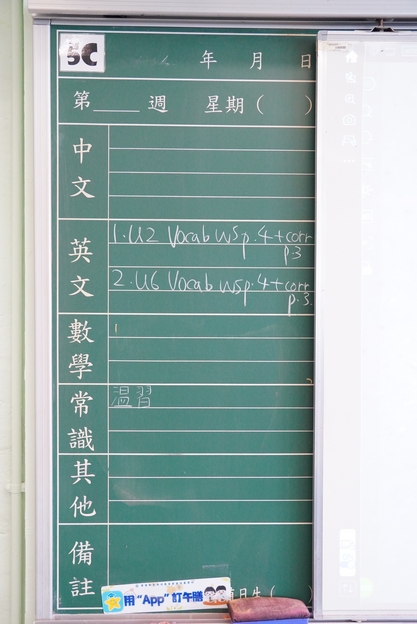 5C
年 月 日
第____週 星期( )
中文
英文
1. U2 Vocab WS p.4 + corr p.3
2. U6 Vocab WS p.4 + corr p.3.
數學
常識
溫習
其他
備註
用 “App” 訂午膳
日生( )